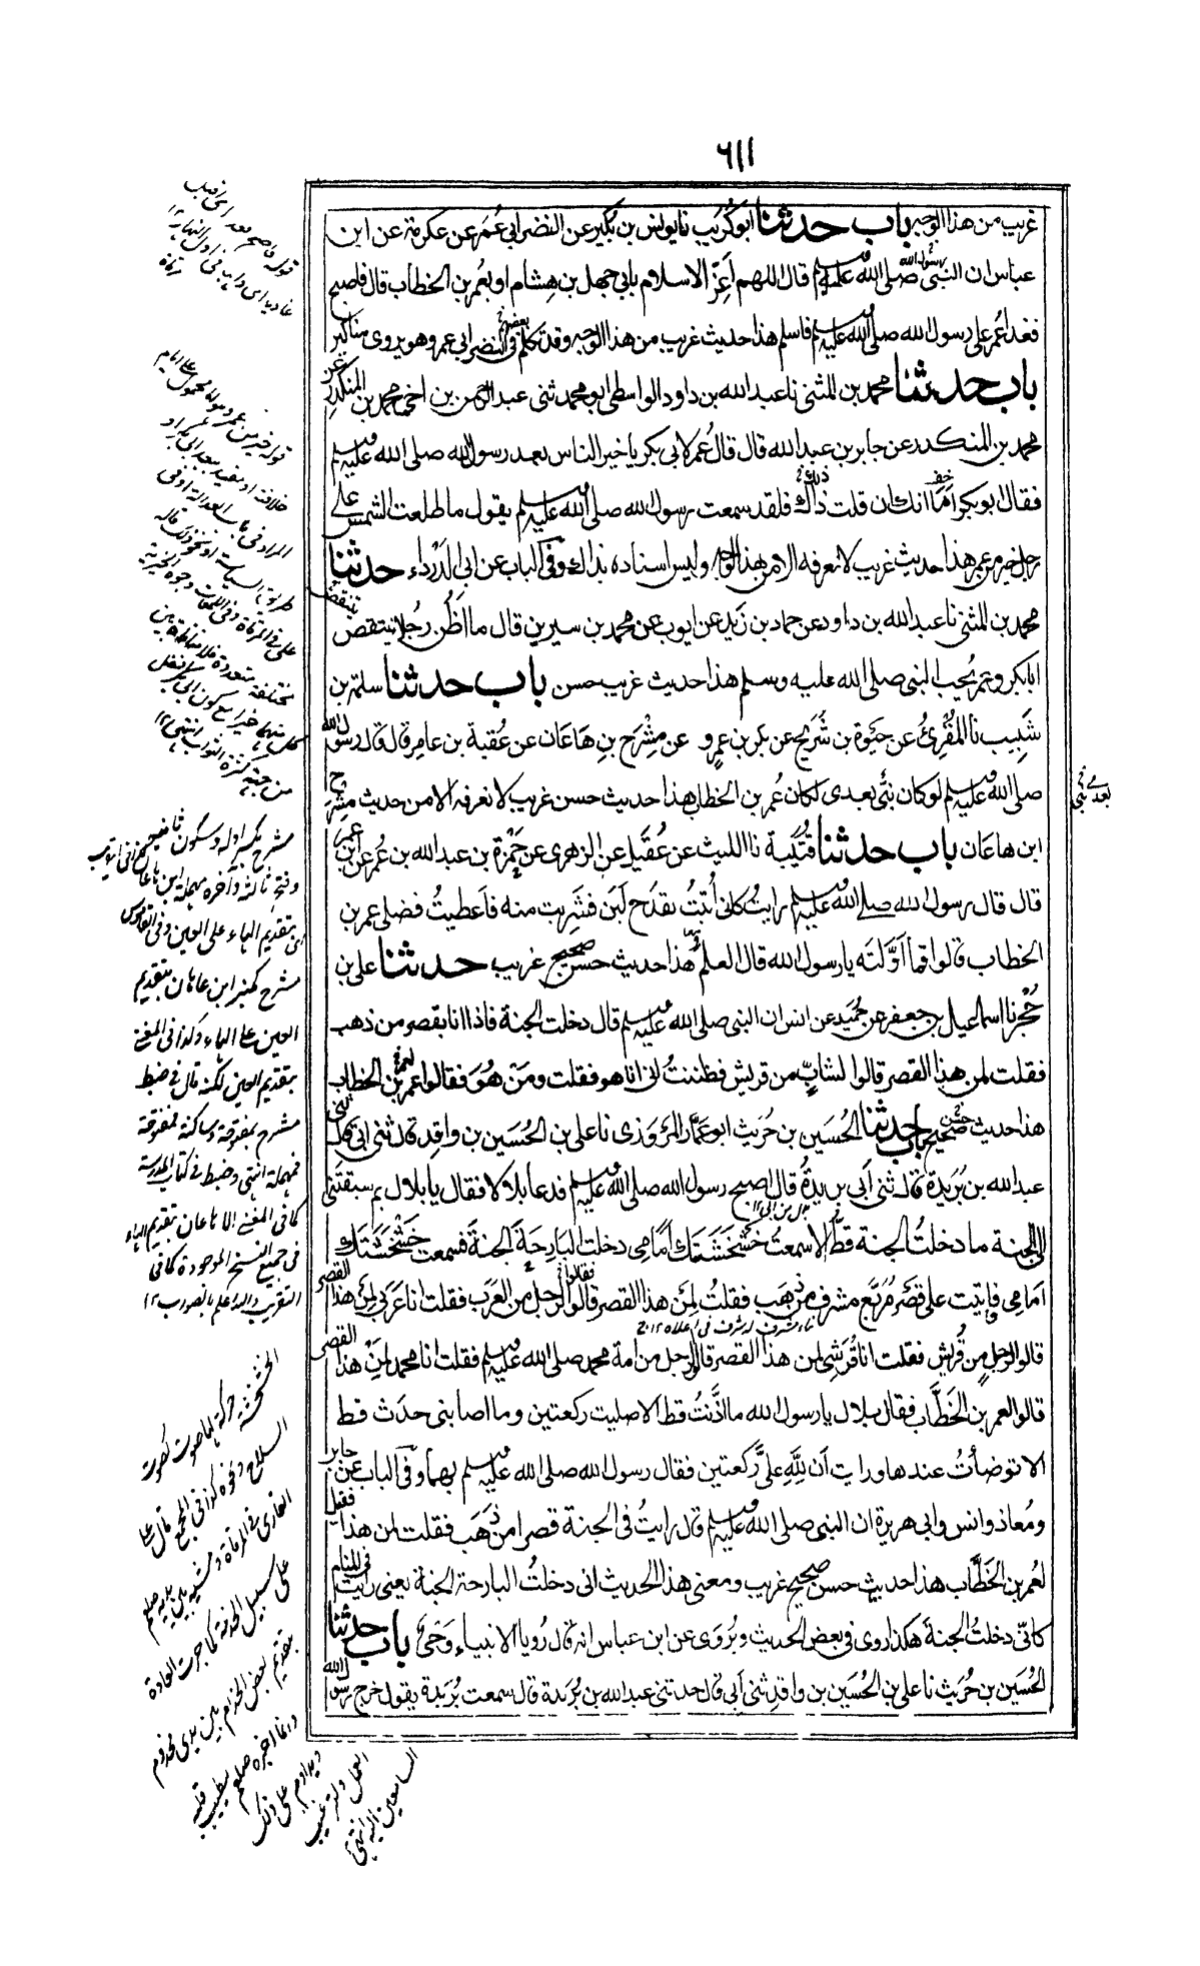 ٦١١
غريب من هذا الوجه باب حدثنا ابو كُرَيب نا يونس بن بُكير عن النضر ابي عُمَر عن عكرمة عن ابن
عباس ان النبي صلى الله عليه وسلم قال اللهم اَعِزَّ الاسلام بابي جهل بن هشام او بعُمر بن الخطاب قال فاصبح
فغدا عُمر على رسول الله صلى الله عليه وسلم فاسلم هذا حديث غريب من هذا الوجه وقد تكلم بعضهم في النضر ابي عمر وهو يروى مناكير
باب حدثنا محمد بن المثنى نا عبد الله بن داود الواسطي ابو محمد ثنى عبد الرحمن بن اخي محمد بن المنكدر عن
محمد بن المنكدر عن جابر بن عبد الله قال قال عُمر لابي بكر يا خير الناس بعد رسول الله صلى الله عليه وسلم
فقال ابو بكر اَمَا انك ان قلت ذاك فلقد سمعت رسول الله صلى الله عليه وسلم يقول ما طلعت الشمس على
رجل خير من عمر هذا حديث غريب لا نعرفه الا من هذا الوجه وليس اسناده بذاك وفي الباب عن ابي الدَرْداء حدثنا
محمد بن المثنى نا عبد الله بن داود عن حماد بن زيد عن ايوب عن محمد بن سيرين قال ما اظُن رجُلا ينتقص
ابا بكر وعمر يُحب النبي صلى الله عليه وسلم هذا حديث غريب حسن باب حدثنا سلمة بن
شَبِيب نا المُقْرِئُ عن حَيْوة بن شُرَيح عن بكر بن عمرو عن مِشْرَح بن هاعان عن عُقبة بن عامر قال قال رسول الله
صلى الله عليه وسلم لو كان نبي بعدى لكان عُمر بن الخطاب هذا حديث حسن غريب لا نعرفه الا من حديث مِشْرَح
ابن هاعان باب حدثنا قُتَيبة نا الليث عن عُقَيل عن الزهري عن حَمْزة بن عبد الله بن عُمر عن ابن عمر
قال قال رسول الله صلى الله عليه وسلم رايتُ كاني اُتيتُ بقدَح لَبَن فشَرِبت منه فاَعطيتُ فضلى عمر بن
الخطاب قالوا فما اَوَّلتَه يا رسول الله قال العلم هذا حديث حسن صحيح غريب حدثنا على بن
حُجْر نا اسماعيل بن جعفر عن حُمَيد عن انس ان النبي صلى الله عليه وسلم قال دخلت الجنة فاذا انا بقصر من ذهب
فقلت لمن هذا القصر قالوا لشابٍّ من قريش فظننتُ اني انا هو فقلت ومَن هُوَ فقالوا عمر بن الخطاب
هذا حديث حسن صحيح باب حدثنا الحُسَين بن حُرَيث ابو عمّار المَرْوَزى نا على بن الحُسَين بن واقِد قال ثنى ابى قال ثنى
عبد الله بن بُرَيدة قال ثنى اَبي بُرَيدةُ قال اصبح رسول الله صلى الله عليه وسلم فدعا بلالا فقال يا بلال بم سبقتَنى
الى الجنة ما دخلتُ الجنة قطُّ الا سمعتُ خَشْخَشَتَك اَمَامِى دخلت البارحة الجنة فسمعت خَشْخَشَتَك
اَمَامِى فاتيت على قصر مُرَبّع مشرف من ذهب فقلتُ لِمَن هذا القصر قالوا لرجل من العَرَب فقلت انا عَرَبى لِمَن هذا القصر
قالوا لرجل من قُريش فقلت انا قُرَشِى لمن هذا القصر قالوا لرجل من امة محمد صلى الله عليه وسلم فقلت انا محمد لِمَنْ هذا القصر
قالوا لعمر بن الخَطَّاب فقال بلال يا رسول الله ما اَذَّنتُ قط الا صليت ركعتين وما اصابنى حدَث قط
الا توضأتُ عندها ورايت اَن لِلّهِ علىَّ ركعتين فقال رسول الله صلى الله عليه وسلم بهما وفي الباب عن جابر
ومُعاذ وانس وابى هريرة ان النبي صلى الله عليه وسلم قال رايتُ في الجنة قصرا من ذهب فقلت لمن هذا فقيل
لعُمر بن الخَطَّاب هذا حديث حسن صحيح غريب ومعنى هذا الحديث انى دخلتُ البارحة الجنة يعنى رايت في المنام
كانّى دخلتُ الجنة هكذا روى في بعض الحديث ويُرْوَى عن ابن عباس انه قال رُويا الانبياء وَحْىٌ باب حدثنا
الحُسَين بن حُرَيث نا على بن الحُسَين بن واقِد ثنى اَبي قال حدثنى عبد الله بن بُرَيدة قال سمعت بُرَيدة يقول خرج رسول الله
بعدى نبي
مشرح بكسر اوله وسكون ثانيه
وفتح ثالثه وآخره مهملة ابن هاعان
بتقديم الهاء على العين وفي القاموس
مشرح كمنبر ابن عاهان بتقديم
العين على الهاء وكذا في المغني
بتقديم العين لكنه قال في ضبط
مشرح بمفتوحة وساكنة فمفتوحة
كما في المغني الا هاعان بتقديم الهاء
في جميع النسخ الموجودة كما في
التقريب والله اعلم بالصواب ١٢
الخشخشة حركة لها صوت كصوت
السلاح ونحوه كذا في المجمع قال على
القارى في المرقاة
على سبيل الخدمة كما جرت العادة
بتقديم بعض الخدام بين يدى مخدوم